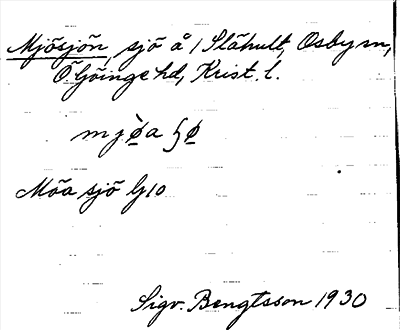 Mjösjön, sjö å 1 Slähult, Osby sn,
Ö Göinge hd, Krist. l.
mjø̀a ɧø
Möa sjö G10
Sigv. Bengtsson 1930